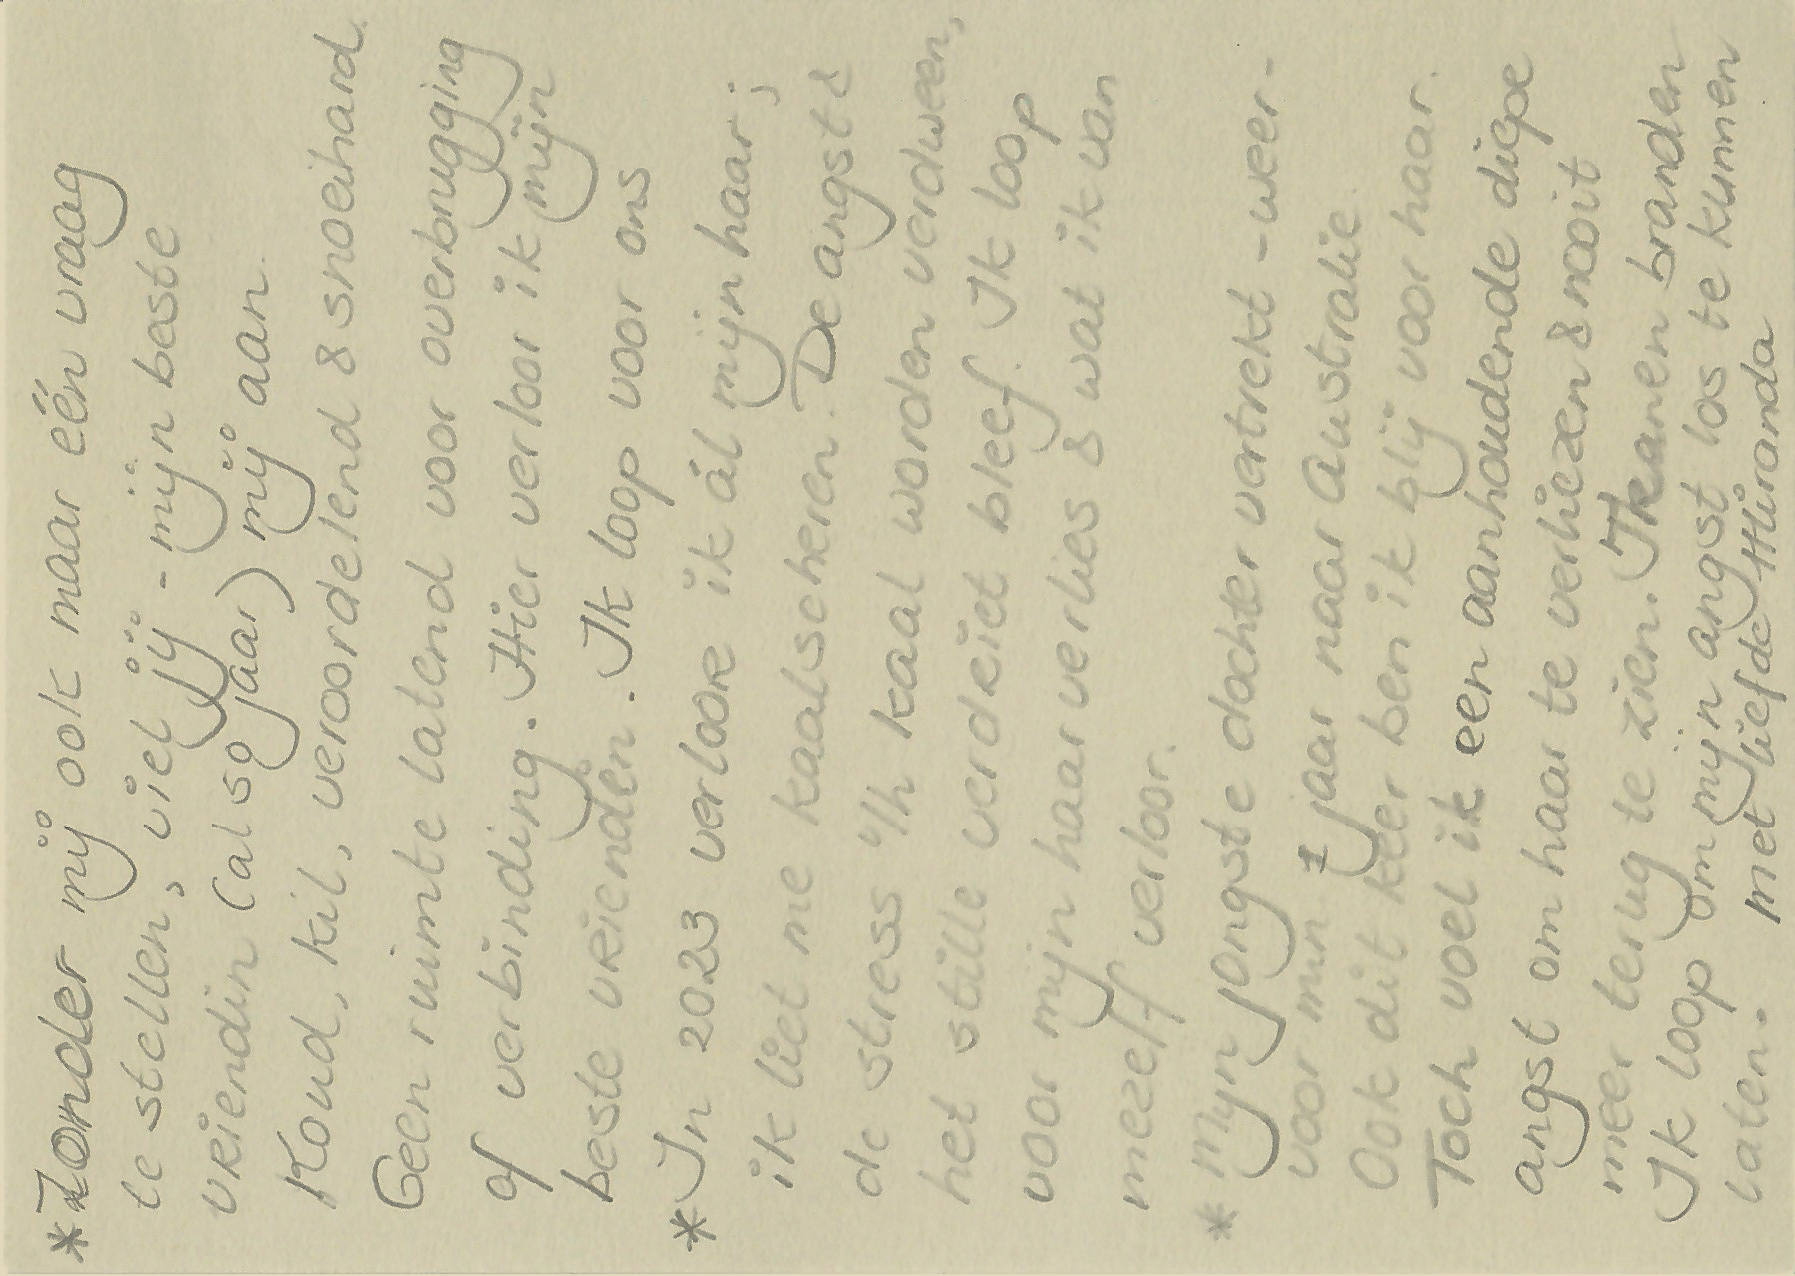 *Zonder mij ook maar één vraag
te stellen, viel jij - mijn beste
vriendin (al 50 jaar) mij aan.
Koud, kil, veroordelend & snoeihard.
Geen ruimte latend voor overbrugging
of verbinding. Hier verloor ik mijn
beste vrienden. Ik loop voor ons
*In 2023 verloor ik ál mijn haar;
ik liet me kaalscheren. De angst &
de stress v/h kaal worden verdween,
het stille verdriet bleef. Ik loop
voor mijn haarverlies & wat ik van
mezelf verloor.
*mijn jongste dochter vertrekt -weer-
voor min. 1 jaar naar Australie.
Ook dit keer ben ik blij voor haar.
Toch voel ik een aanhoudende diepe
angst om haar te verliezen & nooit
meer terug te zien. Ik branden
Ik loop om mijn angst los te kunnen
laten. met liefde Miranda